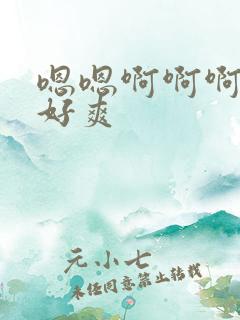 嗯嗯啊啊啊
好爽
元小七
未经同意禁止转载